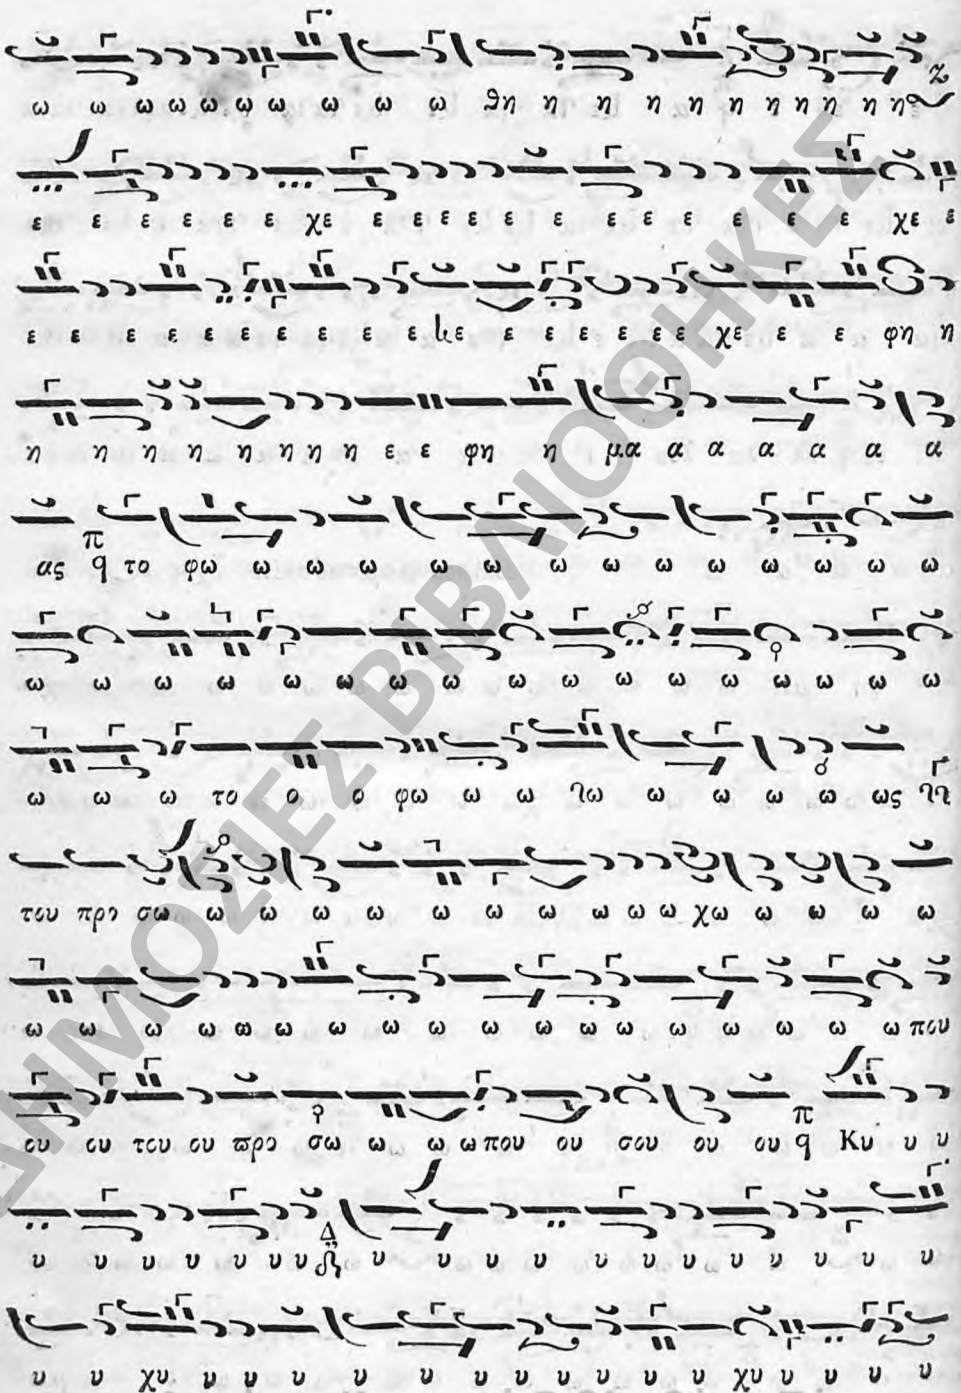 ω ω ω ω ω ω ω ω ω ω θη η η η η η η η η η η
ε ε ε ε ε ε χε ε ε ε ε ε ε ε ε ε ε ε ε χε ε
ε ε ε ε ε ε ε ε ε ε ε ε ε ε ε ε χε ε ε φη η
η η η η η η η η ε ε φη η μα α α α α α α
ας π q το φω ω ω ω ω ω ω ω ω ω ω ω ω ω
ω ω ω ω ω ω ω ω ω ω ω ω ω ω ω ω ω
ω ω ω το ο ο φω ω ω ω ω ω ω ως
του προ σω ω ω ω ω ω ω ω ω ω ω χω ω ω ω ω
ω ω ω ω ω ω ω ω ω ω ω ω ω ω ω ω ω ω που
ου ου του ου προ σω ω ω ω που ου σου ου ου π q Κυ υ υ
υ υ υ υ υ υ υ Δ υ υ υ υ υ υ υ υ υ υ υ υ
υ υ χυ υ υ υ υ υ υ υ υ υ υ υ χυ υ υ υ υ
ΔΗΜΟΣΙΕΣ ΒΙΒΛΙΟΘΗΚΕΣ